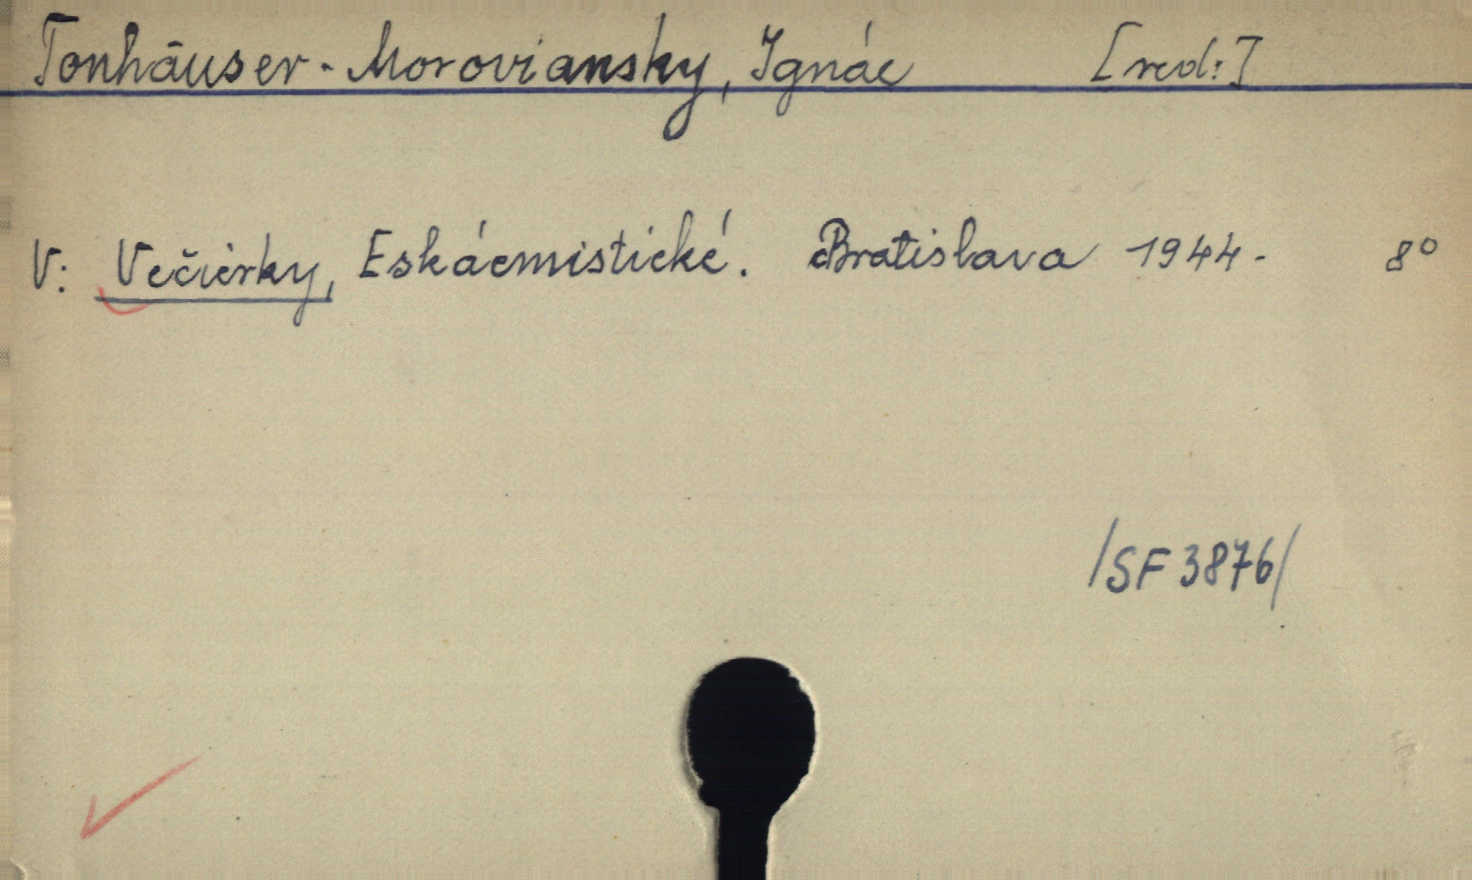 Tonhäuser-Moroviansky, Ignác [red.]
V: Večierky, Eskáemistické. Bratislava 1944- 8°
/SF 3876/